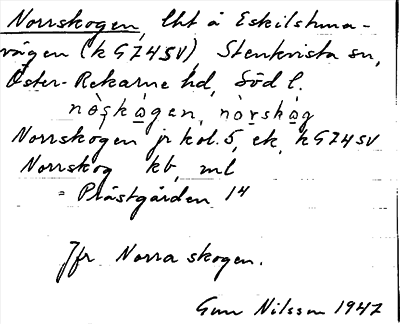 Norrskogen, lht å Eskilstuna-
vägen (k G74SV), Stenkvista sn,
Öster-Rekarne hd, Söd l.
nòṣkàgen, nòrskòg
Norrskogen jr kol. 5, ek, k G74SV
Norrskog kb, ml
= Prästgården 14
Jfr Norra skogen.
Gun Nilsson 1947